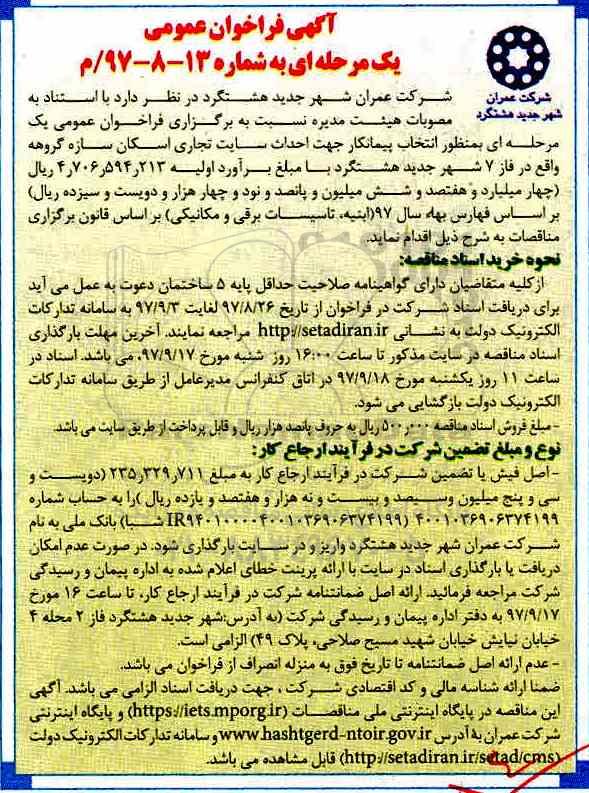 آگهی فراخوان عمومی
یک مرحله ای به شماره ۱۳-۸-۹۷/م
شرکت عمران
شهر جدید هشتگرد
شرکت عمران شهر جدید هشتگرد در نظر دارد با استناد به
مصوبات هیئت مدیره نسبت به برگزاری فراخوان عمومی یک
مرحله ای بمنظور انتخاب پیمانکار جهت احداث سایت تجاری اسکان سازه گروهه
واقع در فاز ۷ شهر جدید هشتگرد با مبلغ برآورد اولیه ۴٫۷۰۶٫۵۹۴٫۲۱۳ ریال
(چهار میلیارد و هفتصد و شش میلیون و پانصد و نود و چهار هزار و دویست و سیزده ریال)
بر اساس فهارس بهاء سال ۹۷(ابنیه، تاسیسات برقی و مکانیکی) بر اساس قانون برگزاری
مناقصات به شرح ذیل اقدام نماید.
نحوه خرید اسناد مناقصه:
ازکلیه متقاضیان دارای گواهینامه صلاحیت حداقل پایه ۵ ساختمان دعوت به عمل می آید
برای دریافت اسناد شرکت در فراخوان از تاریخ ۹۷/۸/۲۶ لغایت ۹۷/۹/۳ به سامانه تدارکات
الکترونیک دولت به نشانی http://setadiran.ir مراجعه نمایند. آخرین مهلت بارگذاری
اسناد مناقصه در سایت مذکور تا ساعت ۱۶:۰۰ روز شنبه مورخ ۹۷/۹/۱۷، می باشد. اسناد در
ساعت ۱۱ روز یکشنبه مورخ ۹۷/۹/۱۸ در اتاق کنفرانس مدیرعامل از طریق سامانه تدارکات
الکترونیک دولت بازگشایی می شود.
- مبلغ فروش اسناد مناقصه ۵۰۰٫۰۰۰ ریال به حروف پانصد هزار ریال و قابل پرداخت از طریق سایت می باشد.
نوع و مبلغ تضمین شرکت در فرآیند ارجاع کار:
- اصل فیش یا تضمین شرکت در فرآیند ارجاع کار به مبلغ ۲۳۵٫۳۲۹٫۷۱۱ (دویست و
سی و پنج میلیون وسیصد و بیست و نه هزار و هفتصد و یازده ریال )را به حساب شماره
۴۰۰۱۰۳۶۹۰۶۳۷۴۱۹۹ (IR۹۴۰۱۰۰۰۰۴۰۰۱۰۳۶۹۰۶۳۷۴۱۹۹ شبا) بانک ملی به نام
شرکت عمران شهر جدید هشتگرد واریز و در سایت بارگذاری شود. در صورت عدم امکان
دریافت یا بارگذاری اسناد در سایت با ارائه پرینت خطای اعلام شده به اداره پیمان و رسیدگی
شرکت مراجعه فرمائید. ارائه اصل ضمانتنامه شرکت در فرآیند ارجاع کار، تا ساعت ۱۶ مورخ
۹۷/۹/۱۷ به دفتر اداره پیمان و رسیدگی شرکت (به آدرس:شهر جدید هشتگرد فاز ۲ محله ۴
خیابان نیایش خیابان شهید مسیح صلاحی، پلاک ۴۹) الزامی است.
- عدم ارائه اصل ضمانتنامه تا تاریخ فوق به منزله انصراف از فراخوان می باشد.
ضمنا ارائه شناسه مالی و کد اقتصادی شرکت ، جهت دریافت اسناد الزامی می باشد. آگهی
این مناقصه در پایگاه اینترنتی ملی مناقصات (https://iets.mporg.ir) و پایگاه اینترنتی
شرکت عمران به آدرس www.hashtgerd-ntoir.gov.ir و سامانه تدارکات الکترونیک دولت
(http://setadiran.ir/setad/cms) قابل مشاهده می باشد.